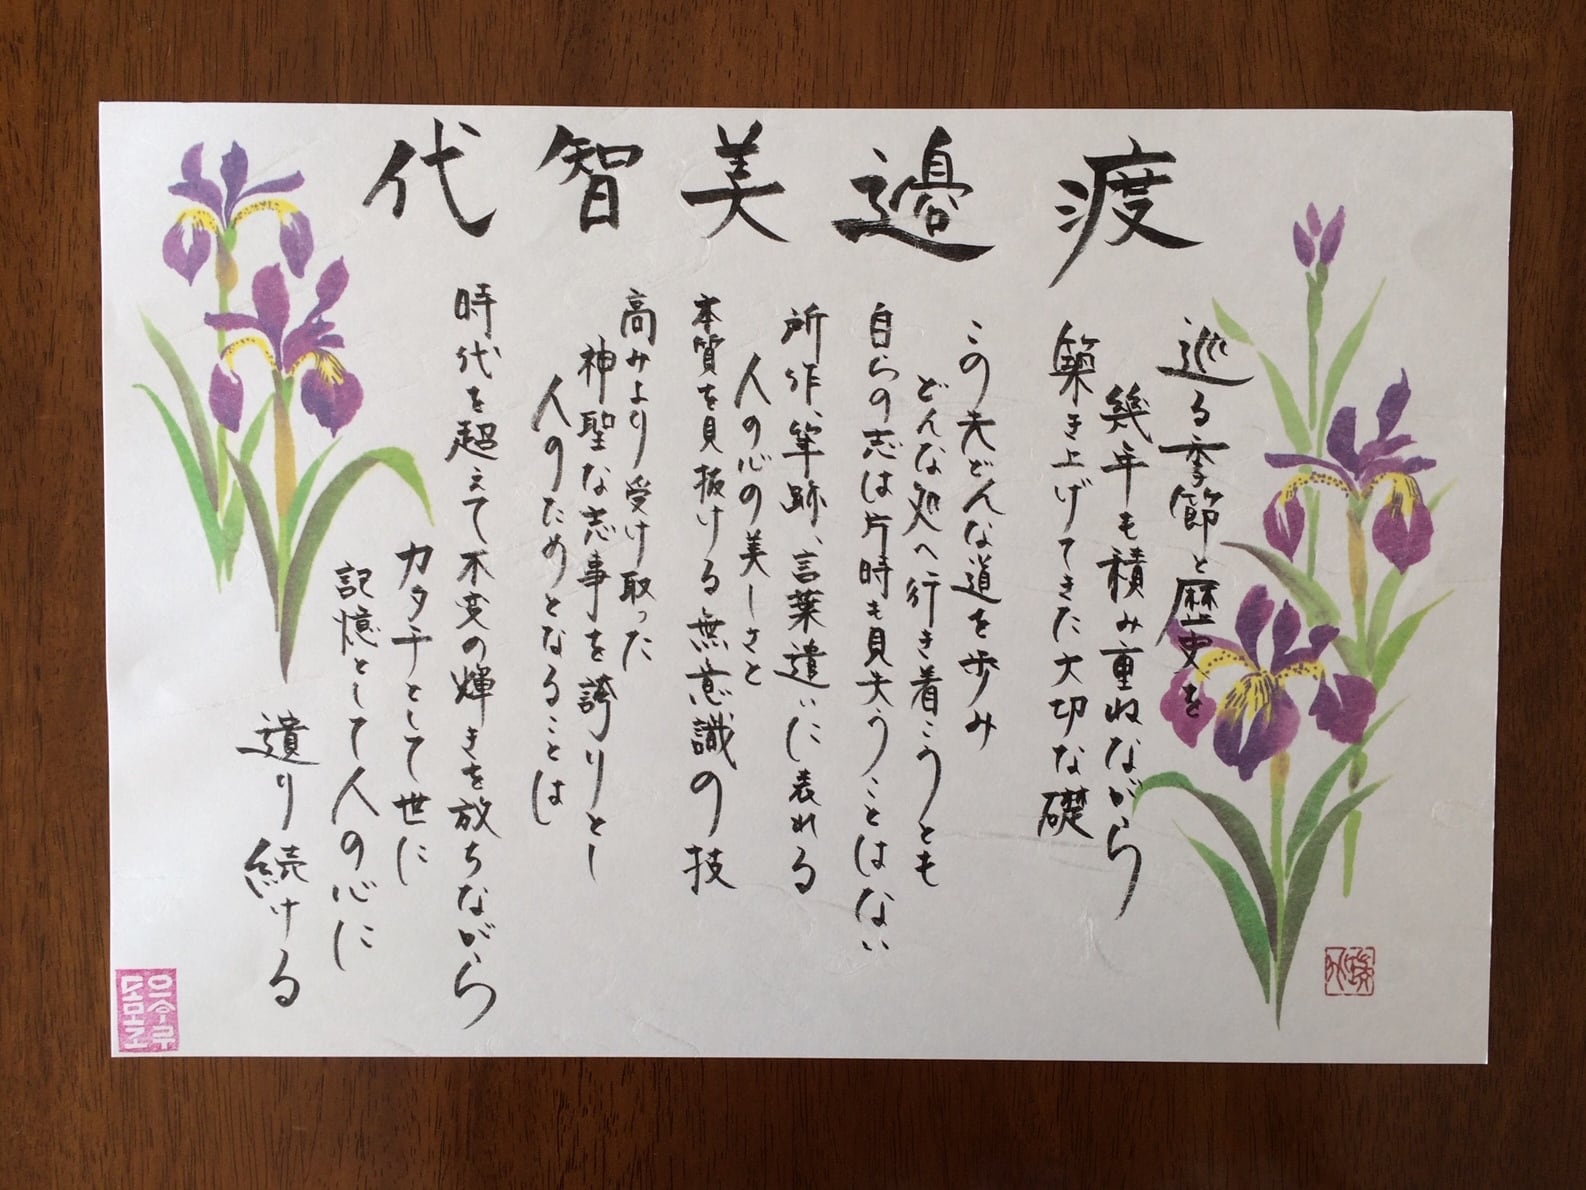 渡邉美智代
巡る季節と歴史を
幾年も積み重ねながら
築き上げてきた大切な礎
この先どんな道を歩み
どんな処へ行き着こうとも
自らの志は片時も見失うことはない
所作、筆跡、言葉遣いに表れる
人の心の美しさと
本質を見抜ける無意識の技
高みより受け取った
神聖な志事を誇りとし
人のためとなることは
時代を超えて不変の輝きを放ちながら
カタチとして世に
記憶として人の心に
遺り続ける